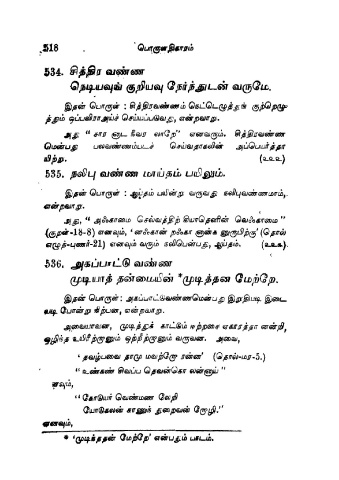 518 பொருளதிகாரம்
534. சித்திர வண்ண
நெடியவுங் குறியவு நேர்ந்துடன் வருமே.
இதன் பொருள் : சித்திரவண்ணம் நெட்டெழுத்துங் குற்றெழு
த்தும் ஒப்பவிராஅய்ச் செய்யப்படுவது, என்றவாறு.
அது “ சார னாட நீவர லாறே” எனவரும். சித்திரவண்ண
மென்பது பலவண்ணம்படச் செய்வதாகலின் அப்பெயர்த்தா
யிற்று. (௨௨௨)
535. நலிபு வண்ண மாய்தம் பயிலும்.
இதன் பொருள் : ஆய்தம் பயின்று வருவது நலிபுவண்ணமாம்,
என்றவாறு.
அது, “ அஃகாமை செல்வத்திற் கியாதெனின் வெஃகாமை ”
(குறள்-18-8) எனவும், ‘னஃகான் றஃகா னான்க னுருபிற்கு’ (தொல்
எழுத்-புணர்-21) எனவும் வரும் நலிபென்பது, ஆய்தம்.
536. அகப்பாட்டு வண்ண
முடியாத் தன்மையின் *முடித்தன மேற்றே.
இதன் பொருள்: அகப்பாட்டுவண்ணமென்பது இறுதியடி இடை
யடி போன்று நிற்பன, என்றவாறு.
அவையாவன, முடித்துக் காட்டும் ஈற்றசை ஏகாரத்தா னன்றி,
ஒழிந்த உயிரீற்றானும் ஒற்றீற்றானும் வருவன. அவை,
‘ தவழ்பவை தாமு மவற்றோ ரன்ன’ (தொல்-மர-5.)
“ உண்கண் சிவப்ப தெவன்கொ லன்னாய் ”
எனவும்,
“ கோடுயர் வெண்மண லேறி
யோடுகலன் காணுந் துறைவன் றோழி.”
எனவும்,
* ‘முடித்ததன் மேற்றே’ என்பதும் பாடம்.